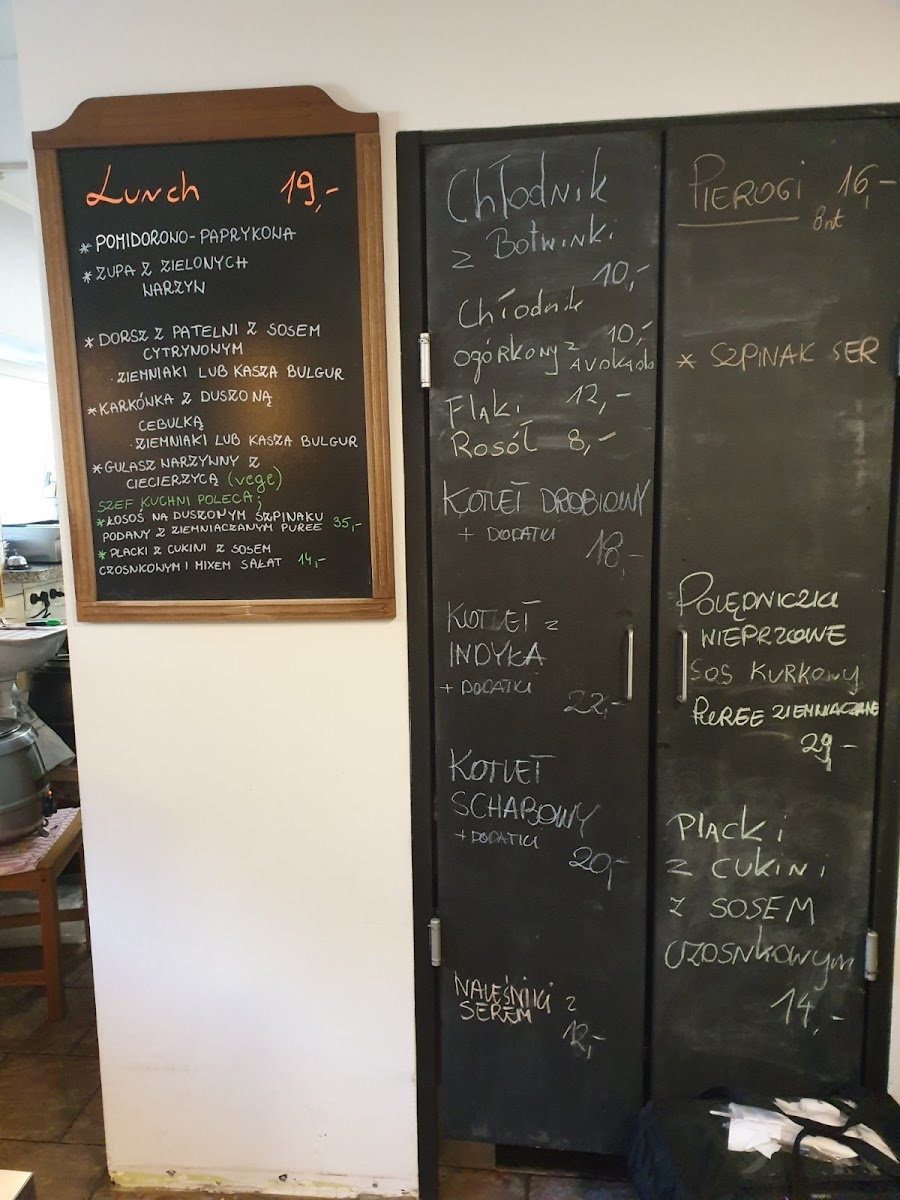 Lunch 19,-
* POMIDOROWO-PAPRYKOWA
* ZUPA Z ZIELONYCH
WARZYW
* DORSZ Z PATELNI Z SOSEM
CYTRYNOWYM
· ZIEMNIAKI LUB KASZA BULGUR
* KARKÓWKA Z DUSZONĄ
CEBULKĄ
· ZIEMNIAKI LUB KASZA BULGUR
* GULASZ WARZYWNY Z
CIECIERZYCĄ (vege)
SZEF KUCHNI POLECA;
* ŁOSOŚ NA DUSZONYM SZPINAKU
PODANY Z ZIEMNIACZANYM PUREE 35,-
* PLACKI Z CUKINI Z SOSEM
CZOSNKOWYM I MIXEM SAŁAT 14,-
Chłodnik
z Botwinki
10,-
Chłodnik
ogórkowy z 10,-
AVOKADO
Flaki 12,-
Rosół 8,-
KOTLET DROBIOWY
+ DODATKI 18,-
KOTLET z
INDYKA
+ DODATKI
22,-
KOTLET
SCHABOWY
+ DODATKI
20,-
NALEŚNIKI z
SEREM
12,-
PIEROGI 16,-
8szt
* SZPINAK SER
POLĘDWICZKI
WIEPRZOWE
SOS KURKOWY
PUREE ZIEMNIACZANE
29,-
PLACKI
Z CUKINI
Z SOSEM
CZOSNKOWYM
14,-